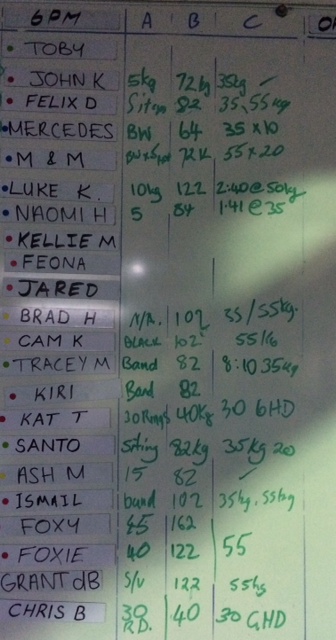 6PM A B C
TOBY
JOHN K 5kg 72kg 35kg
FELIX D 82 35,55kg
MERCEDES BW 64 35 x 10
M & M 72K 55 x 20
LUKE K. 10kg 122 2:40@50kg
NAOMI H 5 84 1:41@35
KELLIE M
FEONA
JARED
BRAD H N/A. 102 35/55kg.
CAM K BLACK 102
TRACEY M Band 82 8:10 35kg
KIRI Band 82
KAT T 30Rings 40Kg 30 GHD
SANTO 82kg 35kg 20
ASH M 15 82
ISMAIL band 102 35kg, 55kg
FOXY 45 162
FOXIE 40 122 55
GRANT dB S/U 122 55kg
CHRIS B 30 RD. 40 30 GHD